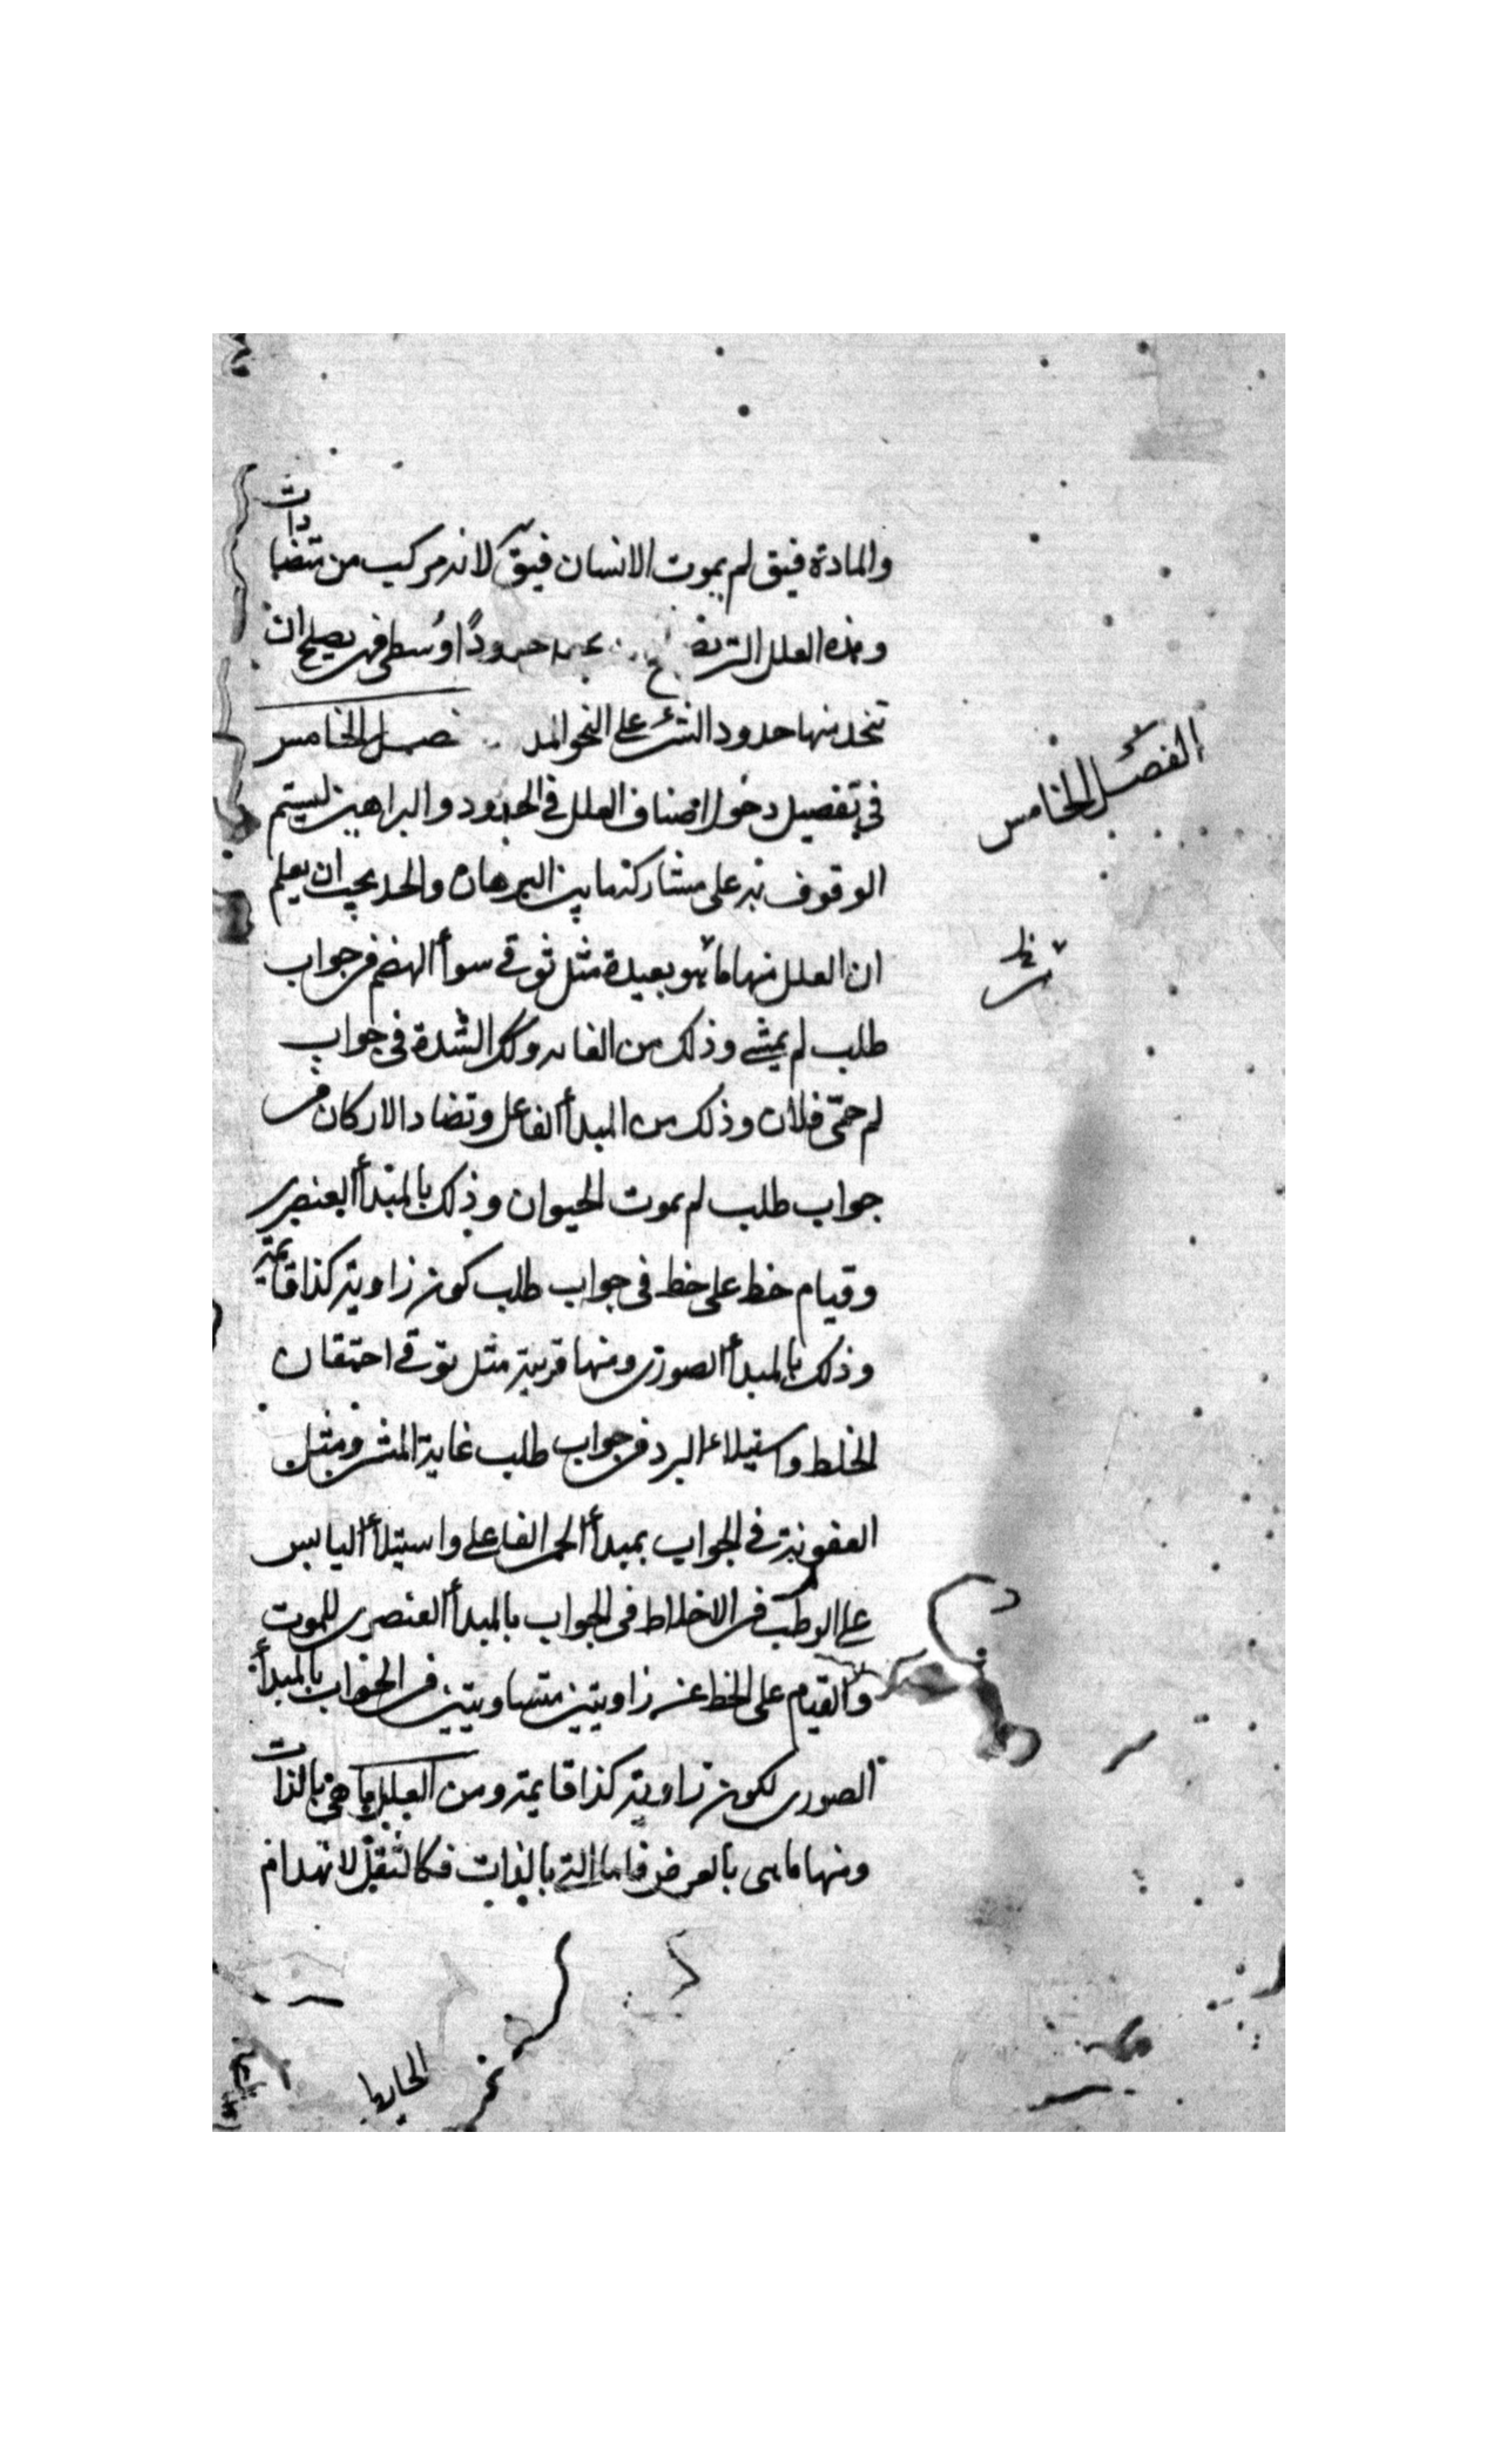 والمادة فيق لم يموت الانسان فيق لانه مركب من متضادات
وهذه العلل التى حدودًا وُسطى فهى يصلح ان
تتخذ منها حدود الشئ على النحو الفصل الخامس
فى تفصيل دخول اصناف العلل فى الحدود والبراهين ليستتم
الوقوف به على مشاركة ما بين البرهان والحد يجب ان يعلم
ان العلل منها ما هو بعيدة مثل توقى سوأ الهضم فى جواب
طلب لم يمشى وذلك من الغاية وكك الشدة فى جواب
لم حمّى فلان وذلك من المبدأ الفاعل وتضاد الاركان فى
جواب طلب لم يموت الحيوان وذلك بالمبدأ العنصرى
وقيام خط على خط فى جواب طلب كون زاوية كذا قايمة
وذلك بالمبدأ الصورى ومنها قريبة مثل توقى احتقان
الخلط واستيلاء البرد فى جواب طلب غاية المشى ومثل
العفونة فى الجواب بمبدأ الحمى الفاعلى واستيلأ اليابس
على الرطب فى الاخلاط فى الجواب بالمبدأ العنصرى للموت
والقيام على الخط عن زاويتين متساويتين فى الجواب بالمبدأ
الصورى لكون زاوية كذا قايمة ومن العلل ما هى بالذات
ومنها ما هى بالعرض فاما التى بالذات فكالثقل لانهدام
الفصل الخامس
الحايط